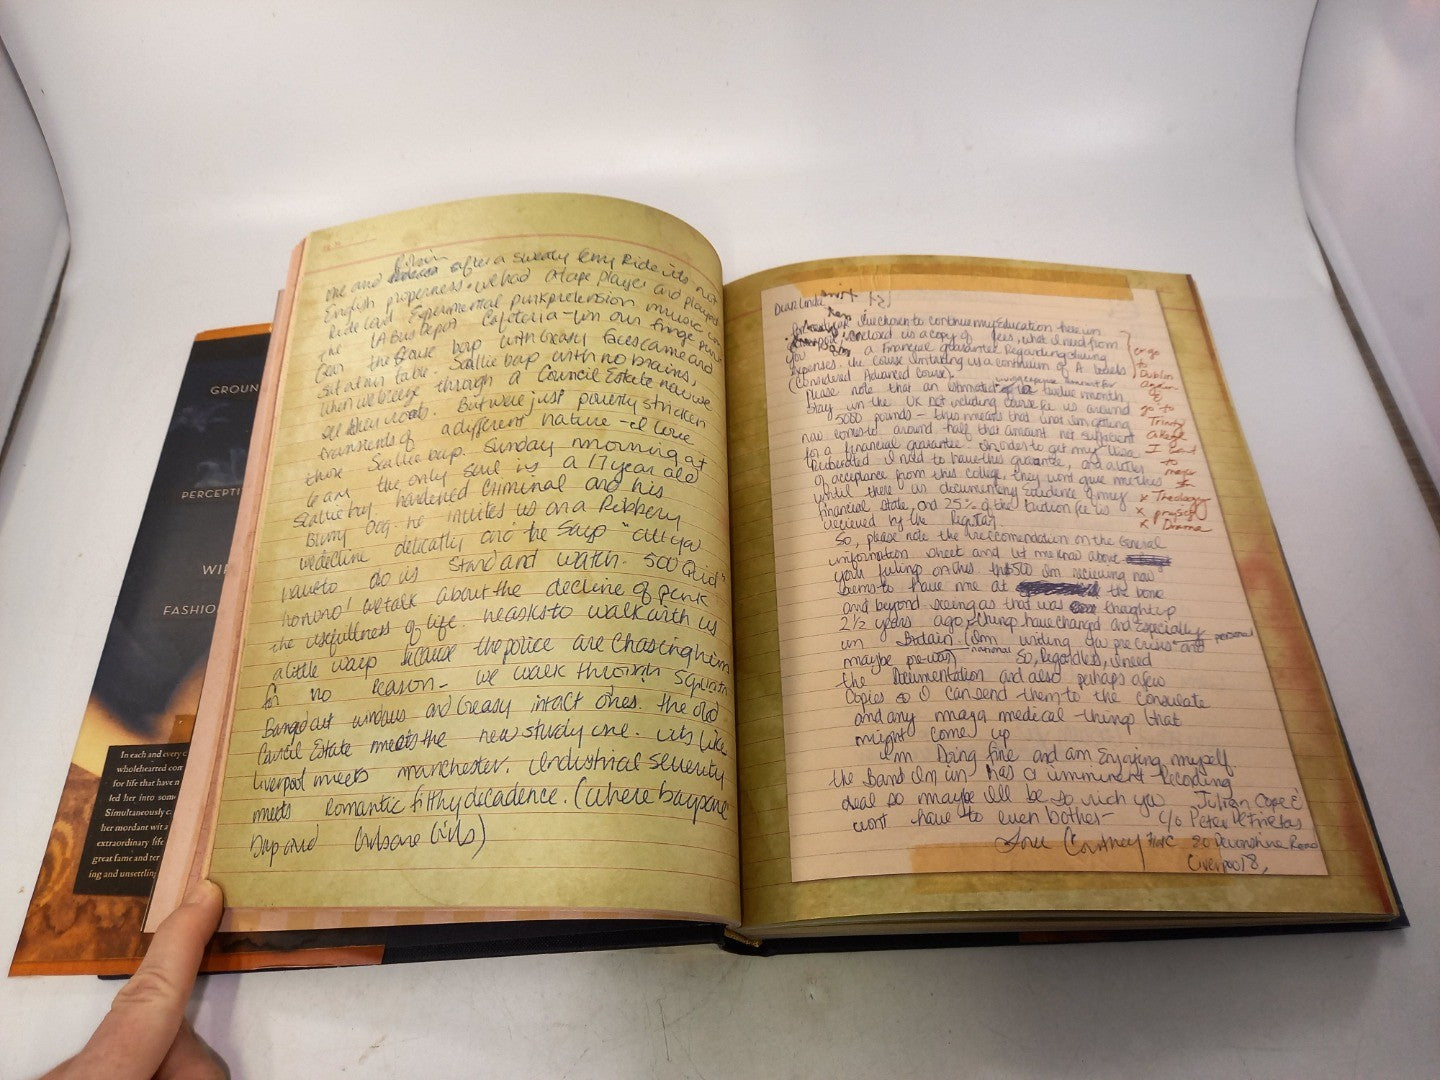 GROUN
PERCEPTI
WI
FASHIO
In each and every c
wholehearted con
for life that have n
led her into som
Simultaneously c
her mordant wit a
extraordinary life
great fame and ter
ing and unsettlin
me and after a sweaty ferry Ride its not
English properness. we had a tape player and played
Real Loud Experimental punk pretension music in
The Bus Depot Cafeteria - in our fringe
the scouse bap with Greasy faces came and
sat at our table. Scallie bap with no brains,
when we breeze through a Council Estate now we
see dear. But were just poverty stricken
transients of a different nature - I love
those Scallie bap. Sunday morning at
6 am the only soul is a 17 year old
Scallie boy hardened Criminal and his
Blimy Dog. he invites us on a Robbery
we decline delicatly and he says "all you
have to do is stand and watch. 500 Quid"
honono! we talk about the decline of punk
the usefullness of life. he asks to walk with us
a little warp because the police are chasing him
for no reason - we walk through squash
Banged out windows and Greasy intact ones. the old
Council Estate meets the new study one. its like
Liverpool meets manchester. industrial severity
meets romantic filthy decadence. (Where
Insane Girls)
Dear Linda
I've chosen to continue my Education here in
enclosed is a copy of fees, what I need from
you is a financial guarantee. Regarding living
Expenses. the course I'm taking is a continuum of A levels
(Considered Advanced Course)
Please note that an Estimated twelve month
Stay in the UK not including course fee is around
5000 pounds - this means that what I'm getting
now comes to around half that amount. not sufficient
for a financial guarantee. In order to get my Visa
I need to have this guarantee, and a letter
of acceptance from this college, they wont give me this
until there is documentary Evidence of my
financial state, and 25% of the tuition fee is
recieved by the Registry.
or go
to
Dublin
again
&
go to
Trinity
College
I want
to
major
in
x Theology
x physics
x Drama
So, please note the reccomendation on the General
information sheet and let me know above
your feeling on this. the $500 I'm recieving now
seems to have me at the bone
and beyond seeing as that was thought up
2 1/2 years ago, things have changed and especially
in Britain (I'm writing you pre Crisis and
personal
maybe pre-war) So, Regardless, I need
national
the Documentation and also perhaps a few
Copies so I can send them to the Consulate
and any maga medical things that
might come up
I'm Doing fine and am Enjoying myself.
the Band I'm in has a imminent Recording
deal so maybe I'll be so rich ya
wont have to even bother -
Love Courtney
Julian Cope
c/o Peter deFrietas
20 Devonshire Road
Liverpool 8,